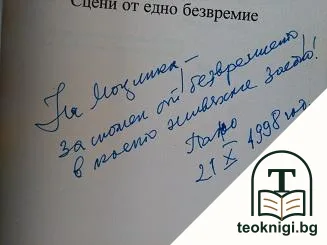 Сцени от едно безвремие
На
за спомен от безвремието,
в което живяхме заедно!
21 X 1998 год.
T
teoknigi.bg